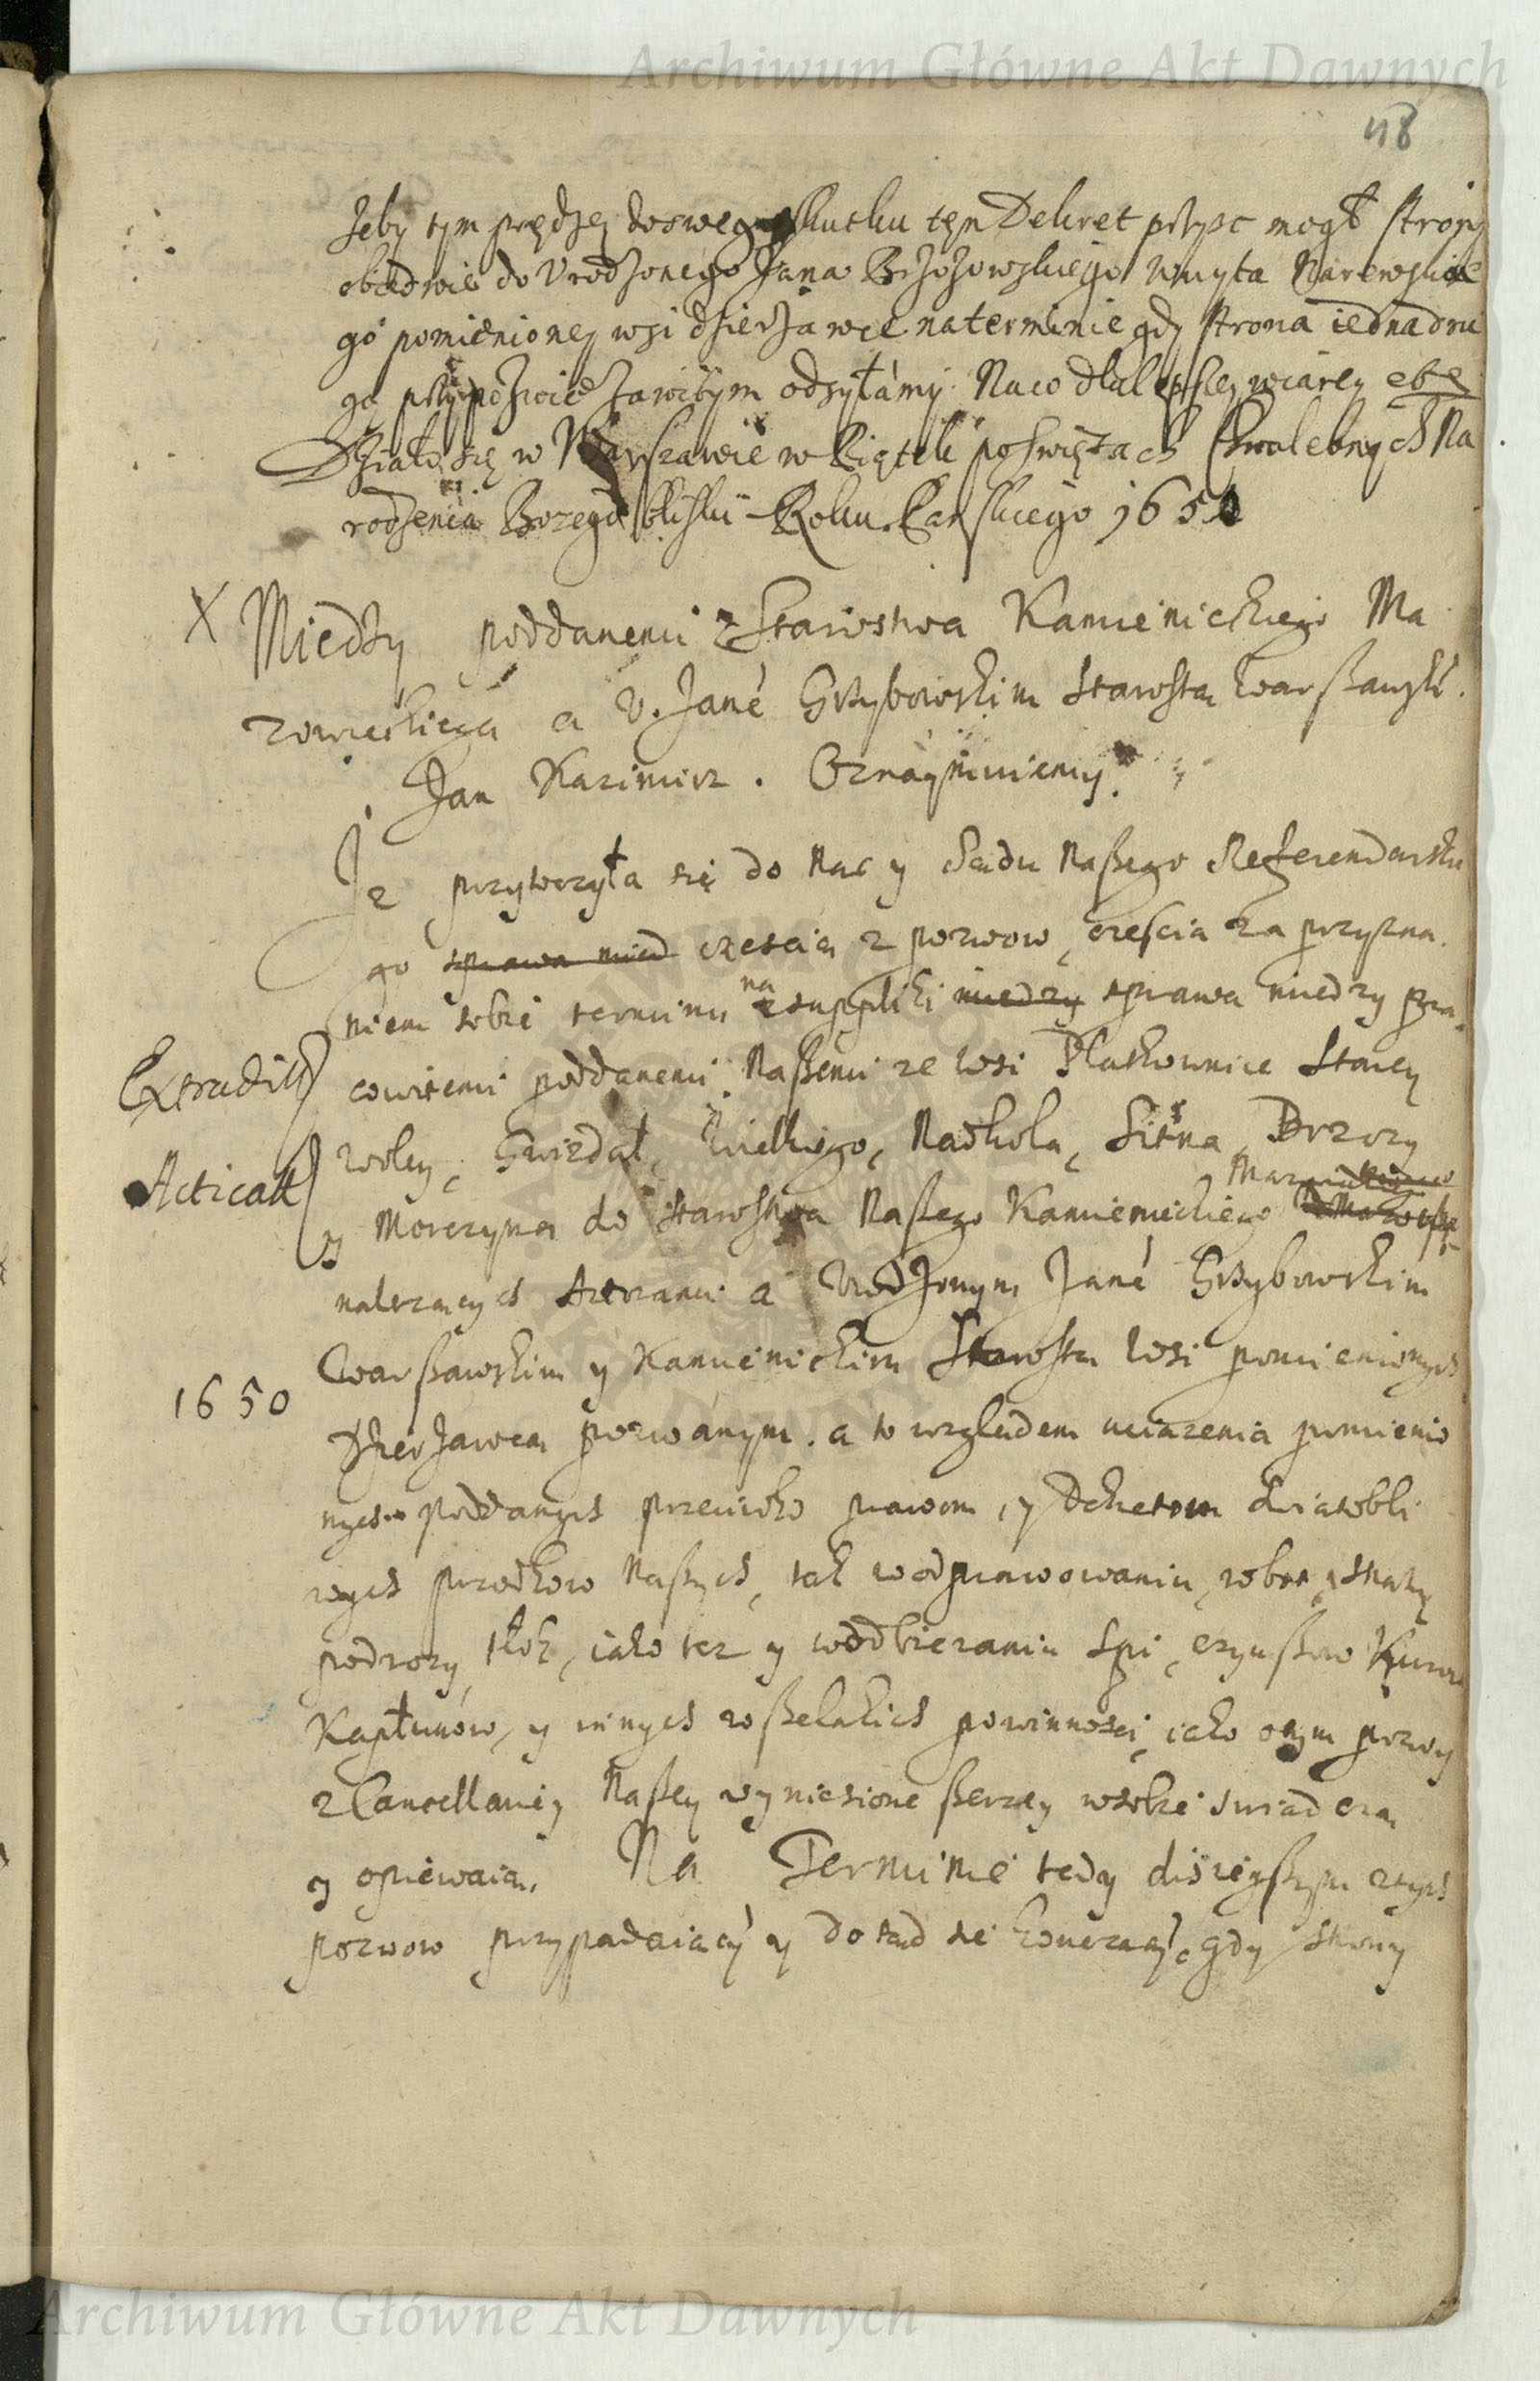 Archiwum Główne Akt Dawnych
48
żeby tym prędzej do swego skutku ten Dekret przysc mogł strony
obiedwie do Vrodzonego Jana Brzozowskiego Woyta Narewskie
go pomienioney wsi dzierzawce na terminie gdy strona iedna dru
gą przypozwie zawitym odsyłámy. Na co dla lepszey wiary etc
Działo się w Warszawie w Piątek po Swiętach Chwalebnych Na
rodzenia Bozego bliski Roku Pańskiego 1650
X Miedzy poddanemi z Starostwa Kamienickiego Ma
zowieckiego a V. Janē Grzybowskim Starostą Warszawsk.
Jan Kazimirz. Oznaymuiemy.
Iz przytoczyła się do Nas y Sadu Naszego Referendarskie
go sprawa mied czescią z pozwow, czescia za przyzna
niem sobie terminu na z suppliki miedzy sprawa miedzy pra
cowitemi poddanemi Naszemi ze wsi Płatkownice Starey
Extradit
woley, Gwizdał, Wielkiego, Nadkola, Sitna, Brzozy
Acticat
y Morczyna do Starostwa Naszego Kamienieckiego
nalezących Actorami a Vrodzonym Janē Grzybowskim
Warszawskim y Kamienickim Starostą wsi pomienionych
1650
Dzierzawcą pozwánym. a to względem uciazenia pomienio
nych poddanych przeciwko prawom, y Dekretom Swiatobli
wych przodkow Naszych, tak w odprawowaniu robot, straży
podrozy, tłok, iako tez y w odbieraniu Spi, czynszow Kurow
Kapłunów, y innych wszelakich powinnosci, iako o tym pozwy
z Cancellariey Naszey wyniesione szerzey w sobie swiadczą
y opiewaią. Na Terminie tedy disieyszym z tych
pozwow przypadaiący y do tąd sie konczący, gdy strony
Archiwum Główne Akt Dawnych